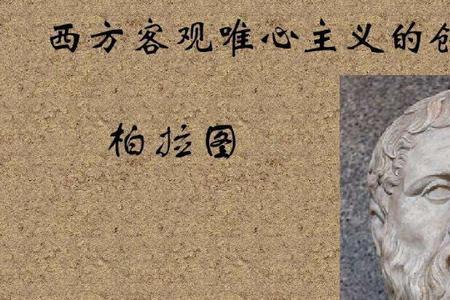 西方客观唯心主义的
柏拉图